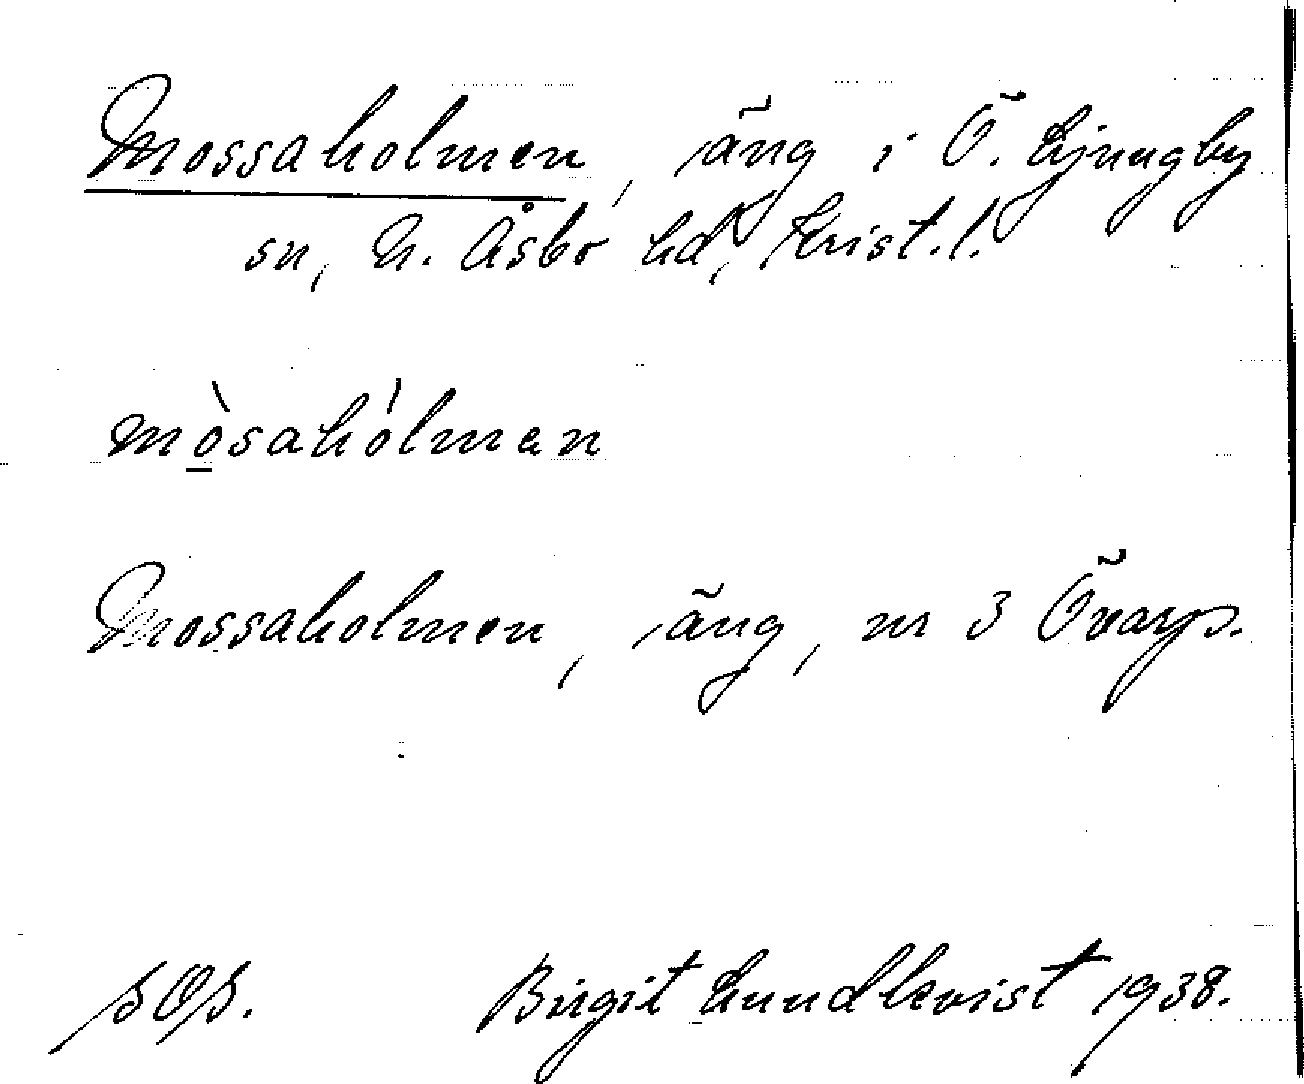 Mossaholmen, äng i Ö. Ljungby
sn, N. Åsbo hd, Krist. l.
mò̱sahólmen
Mossaholmen, äng, nr 3 Övarp.
Birgit Lundkvist 1938.